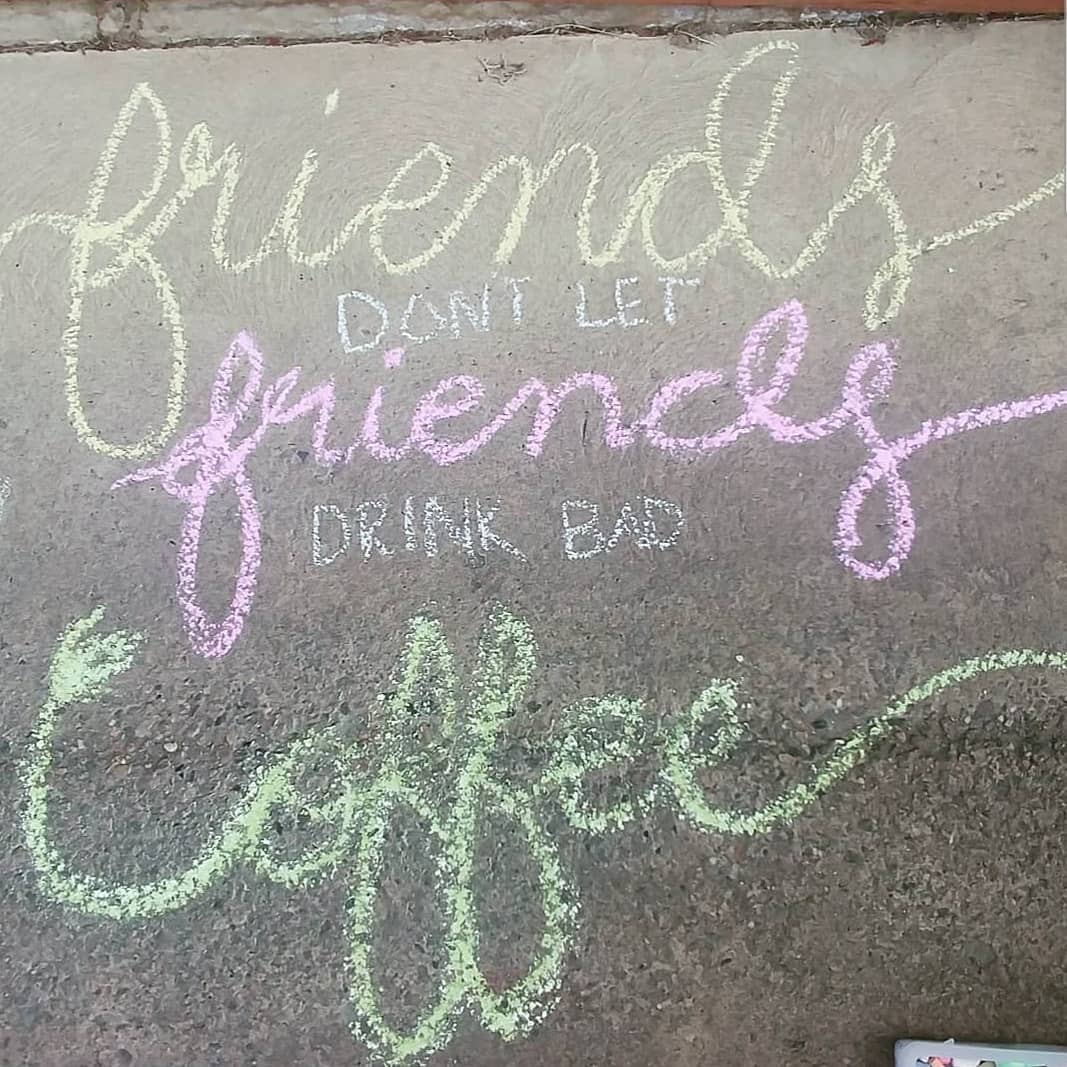 friends
DONT LET
friends
DRINK BAD
Coffee